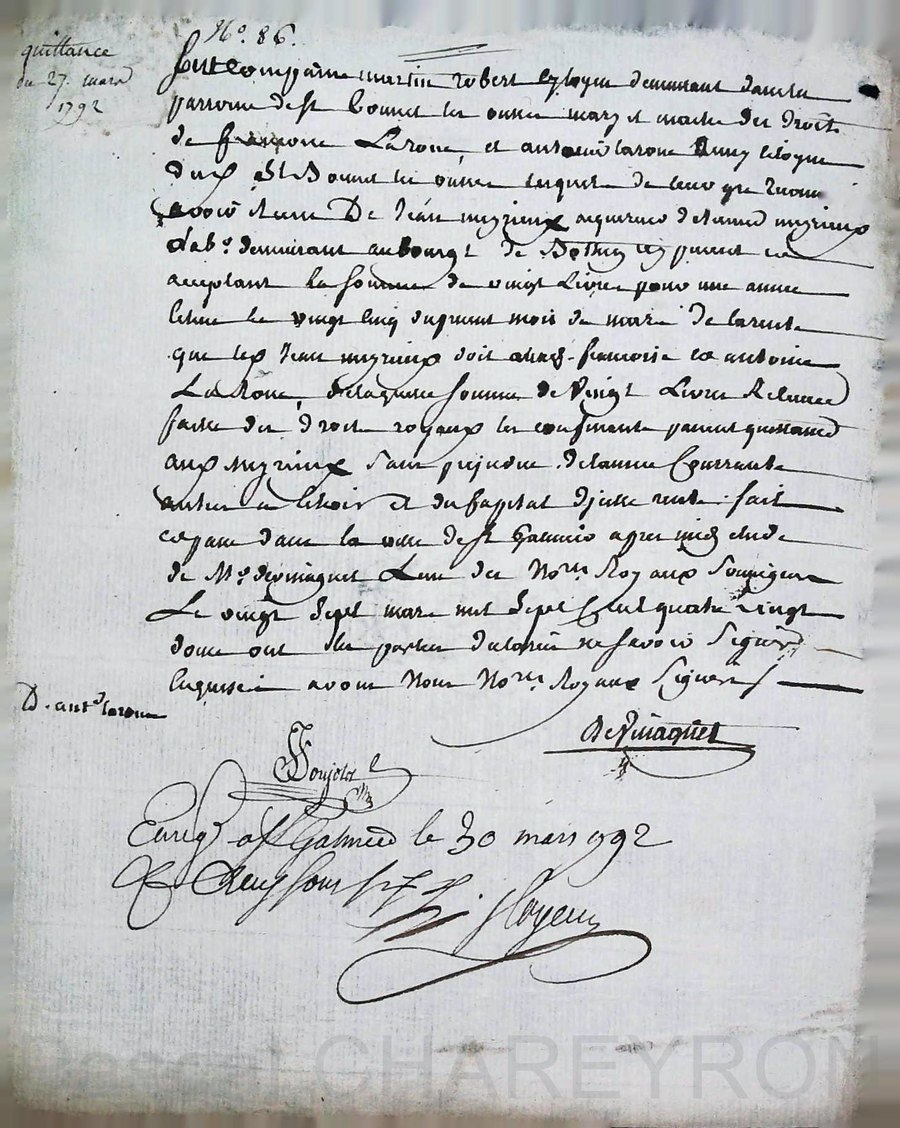 N.o 86.
quittance
du 27. mars
1792
Sont Comparu martin robert Citoyen demeurant dans la
parroisse de st Bonnet les oulles mary et maitre des Droits
de françoise Laroue, et antoine laroue aussy Citoyen
dud st Bonnet les oulles lesquels de leur gre
avoir Reçeu De Jean meyrieux acquereur d'etienne meyrieux
demeurant au bourg de present et
acceptant la somme de vingt Livres pour une année
echue le vingt cinq du present mois de mars De la rente
que led Jean meyrieux doit auxd. françoise et antoine
La Roue, de laquelle somme de Vingt Livres Retenue
faitte des Droits royaux les confessants passent quittance
aux meyrieux Sans prejudice de l'année Courrante
entier a echoir et du Capital d'jcelle rente. fait
et passé dans la ville de st Galmier apres midy etude
de Me devinaquet L'un des Nores Royaux Soussignes
Le vingt Sept mars mil Sept Cent quatre vingt
douze ont les parties declaré ne savoir Signer
enquises avons Nous Nores Royaux Signers
D. ante laroue
DeVinaquet
Ponjolet
Enreg a st Galmier le 30 mars 1792
R Cinq sous
CHAREYRON